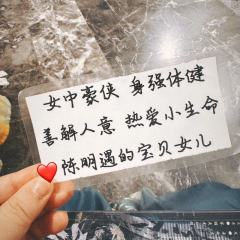 女中豪侠 身强体健
善解人意 热爱小生命
陈明遇的宝贝女儿